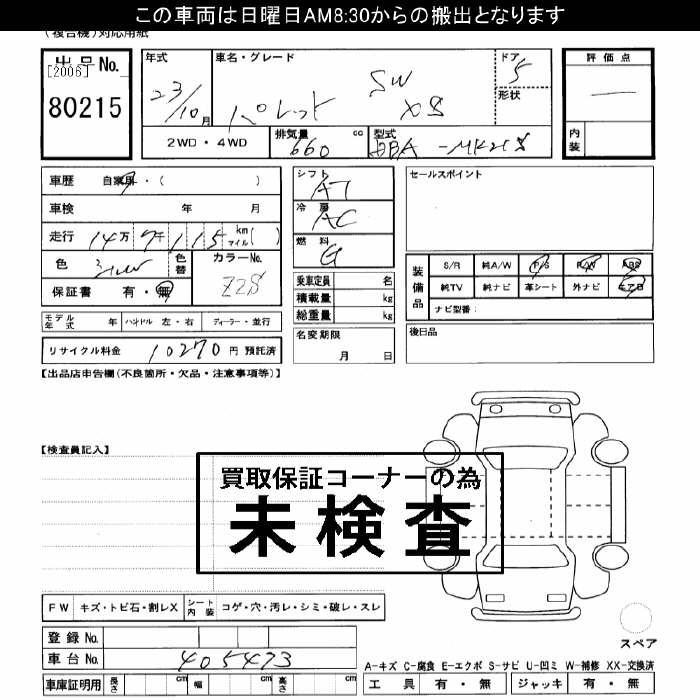 この車両は日曜日AM8:30からの搬出となります
(複合機)対応用紙
出品No.
[2006]
80215
年式
23/10月
車名・グレード
パレット SW XS
ドア 5
形状
評価点
—
内装
2WD・4WD
排気量 660 cc
型式 DBA-MK21S
車歴 自家用・( )
車検 年 月
走行 14万7千115 km マイル( )
色 シルバー
色替
カラーNo. Z2S
保証書 有・無
モデル年式 年 ハンドル 左・右 ディーラー・並行
リサイクル料金 10270 円 預託済
シフト AT
冷房 AC
燃料 G
乗車定員 名
積載量 kg
総重量 kg
名変期限
月 日
セールスポイント
装備品
S/R 純A/W P/S P/W ABS
純TV 純ナビ 革シート 外ナビ エアB
ナビ型番:
後日品
【出品店申告欄(不良箇所・欠品・注意事項等)】
【検査員記入】
買取保証コーナーの為
未検査
FW キズ・トビ石・割レX シート内装 コゲ・穴・汚レ・シミ・破レ・スレ
登録No.
車台No. 405473
車庫証明用 長さ cm 幅 cm 高さ cm
スペア
A-キズ C-腐食 E-エクボ S-サビ U-凹ミ W-補修 XX-交換済
工具 有・無 ジャッキ 有・無